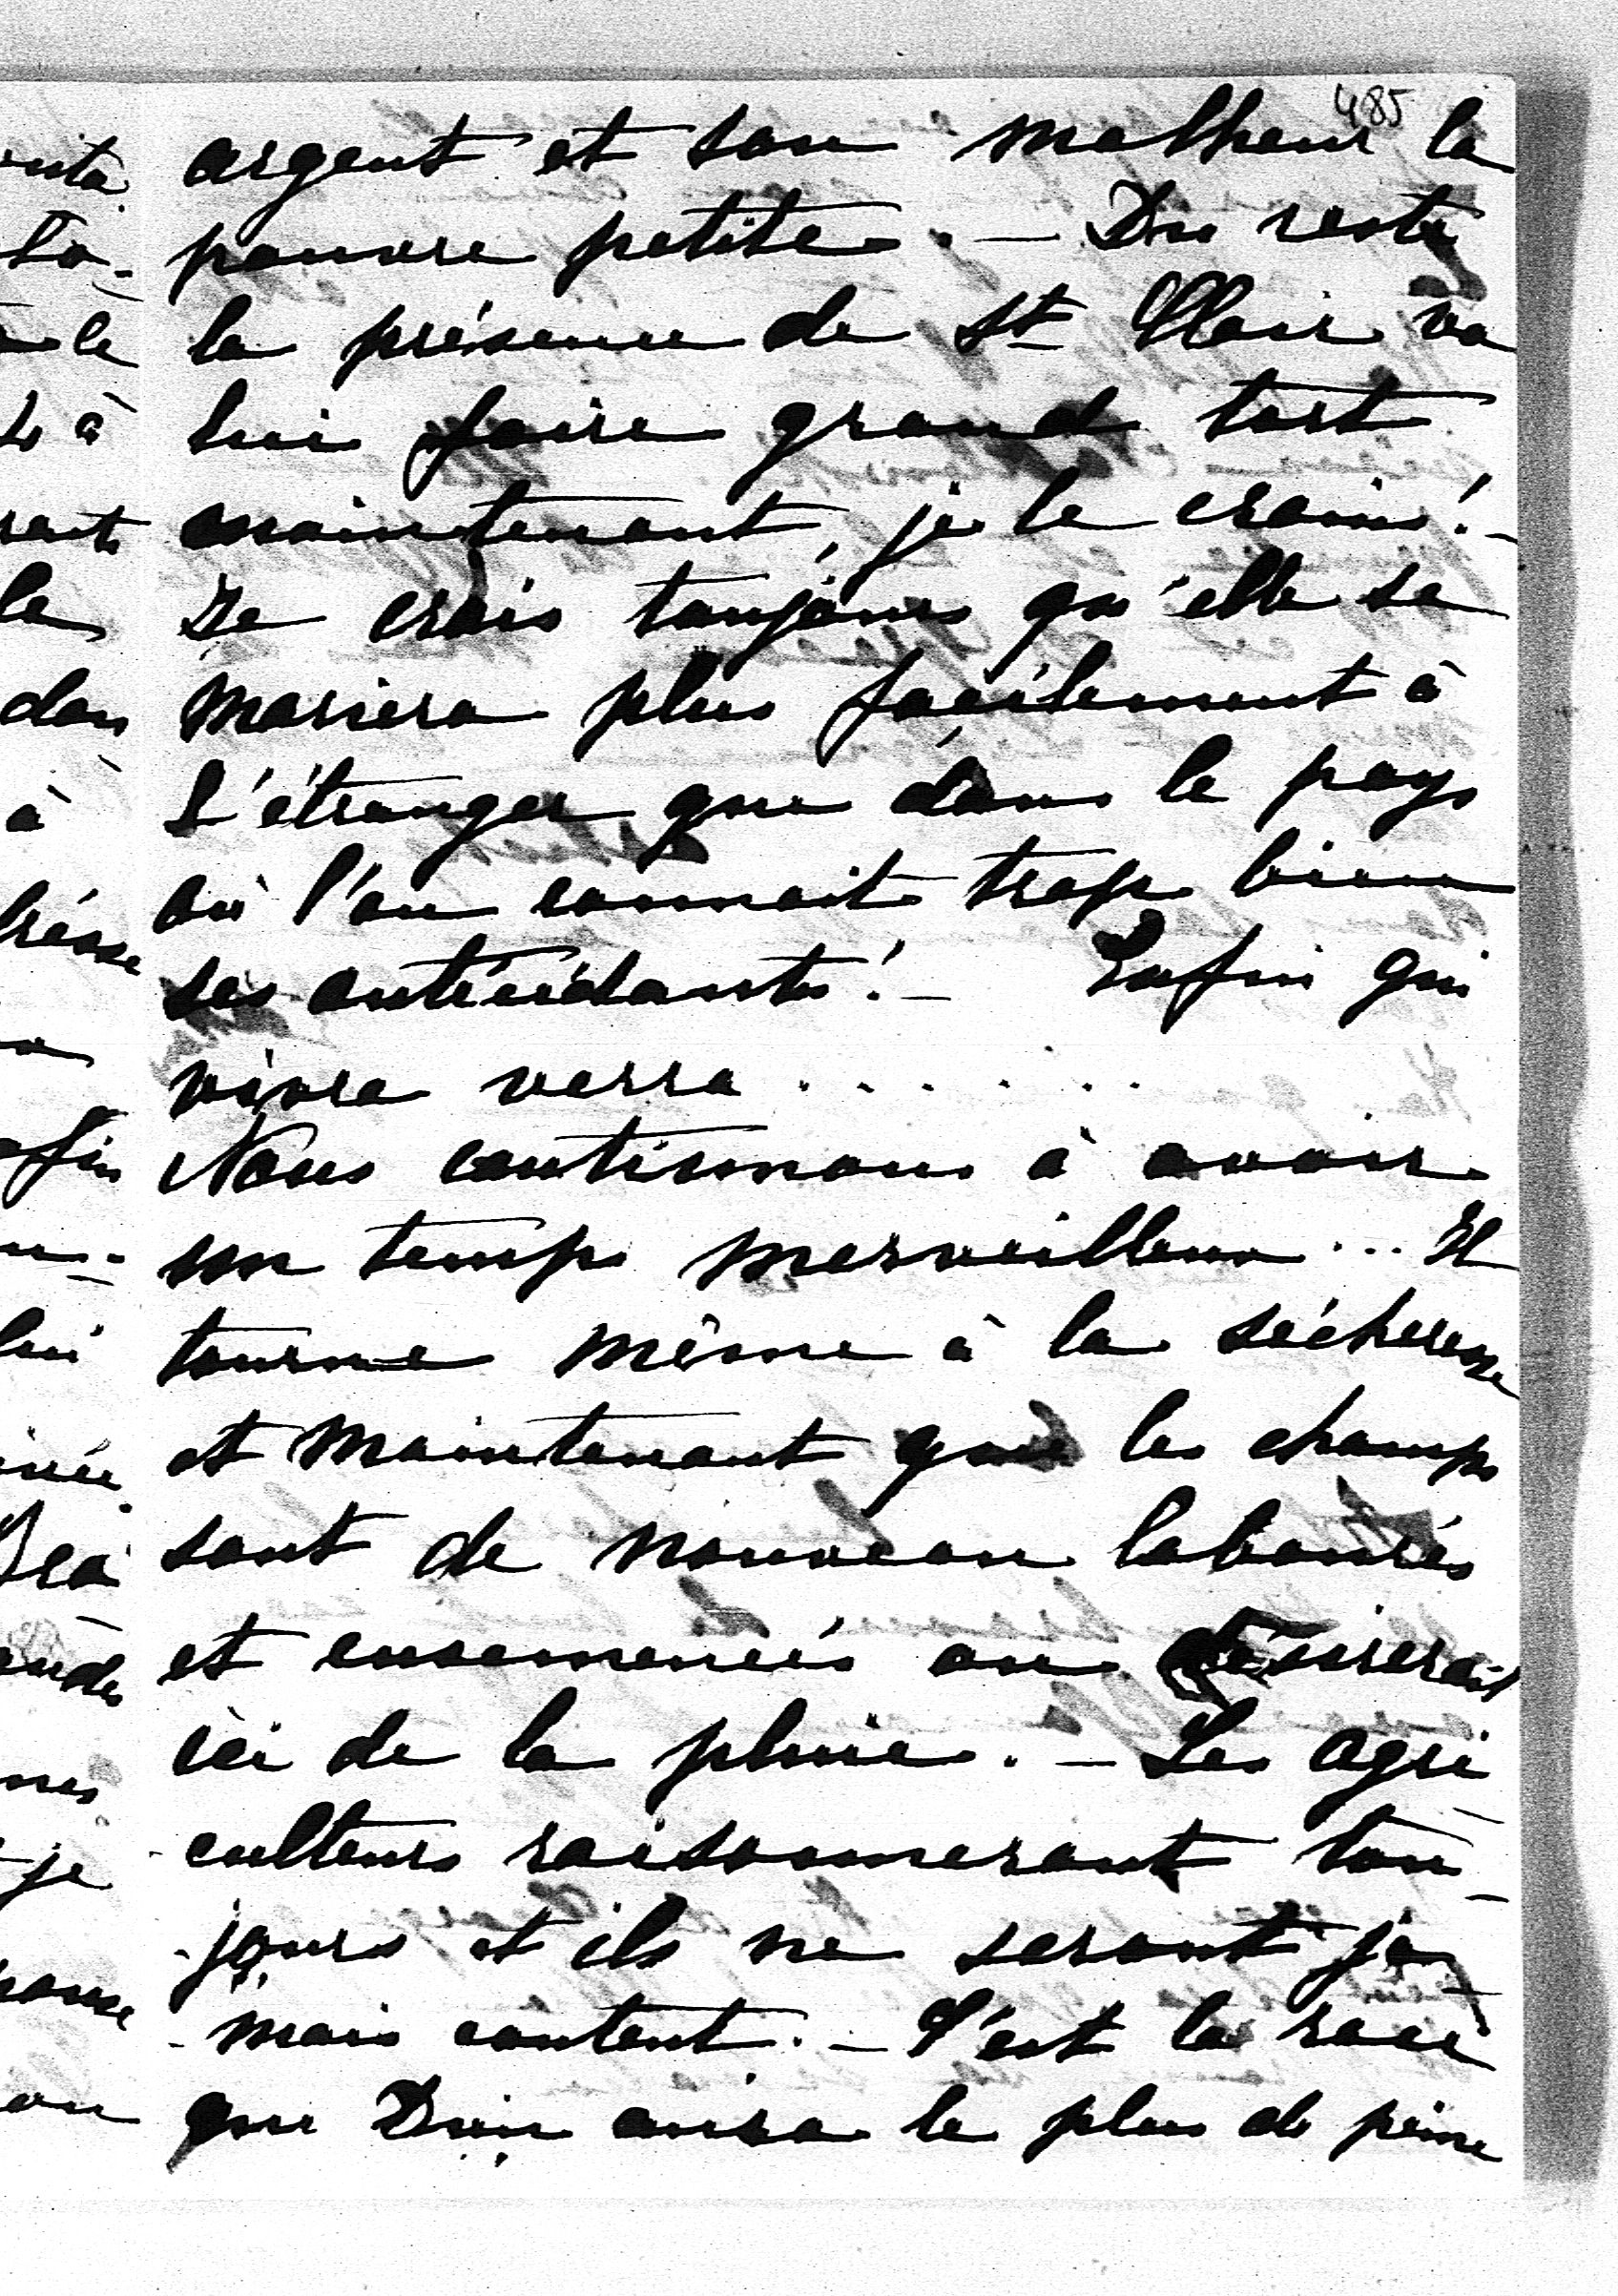 485
argent et son malheur la
pauvre petite. — Du reste
la présence de St Clair va
lui faire grand tort
maintenant, je le crains! -
Je crois toujours qu'elle se
mariera plus facilement à
l'étranger que dans le pays
où l'on connait trop bien
ses antécédants! - Enfin qui
vivra verra . . . . . . .
Nous continuons à avoir
un temps merveilleux ... Il
tourne même à la sécheresse
et maintenant que les champs
sont de nouveau labourés
et ensemencés on désirerait
ici de la pluie. — Les agri
-culteurs raisonneront tou-
-jours et ils ne seront ja
-mais content. - C'est la race
que Dieu aura le plus de peine